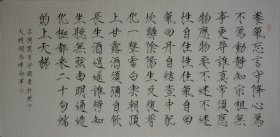 養氣忘言守降心為
不為動靜知宗祖無
事更尋誰真常須應
物應物要不迷不迷
性自住性住氣自回
氣回丹自結壺中配
坎離陰陽生反復普
化一聲雷白雲朝頂
上甘露灑須彌自飲
長生酒逍遙誰得知
坐聽無弦曲明通造
化機都來二十句端
的上天梯